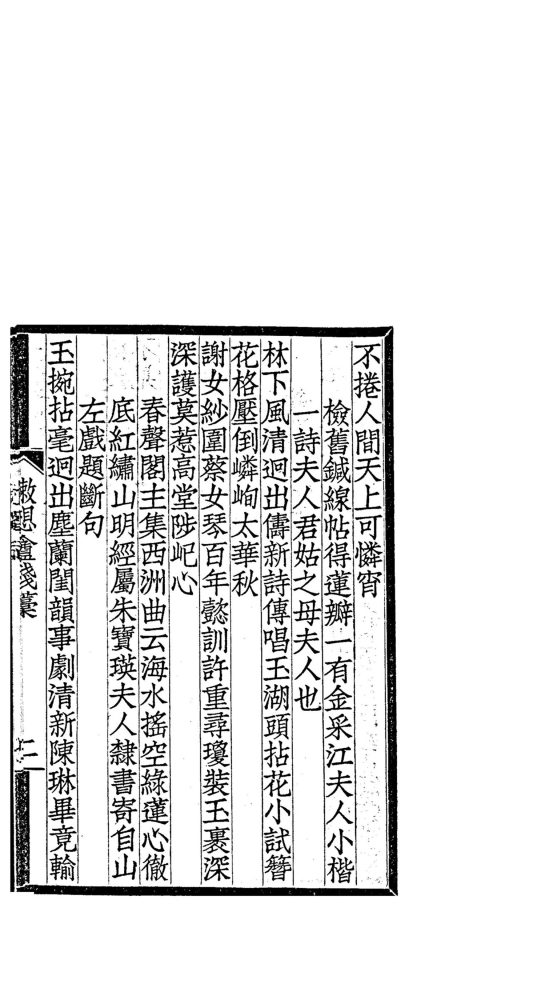 不捲人間天上可憐宵
檢舊鍼線帖得蓮瓣一有金采江夫人小楷
一詩夫人君姑之母夫人也
林下風清迥出儔新詩傳唱玉湖頭拈花小試簪
花格壓倒嶙峋太華秋
謝女紗圍蔡女琴百年懿訓許重尋瓊裝玉裹深
深護莫惹高堂陟屺心
春聲閣主集西洲曲云海水搖空綠蓮心徹
底紅繡山明經屬朱寶瑛夫人隸書寄自山
左戲題斷句
玉捥拈毫迥出塵蘭閨韻事劇清新陳琳畢竟輸
盦殘藁
二